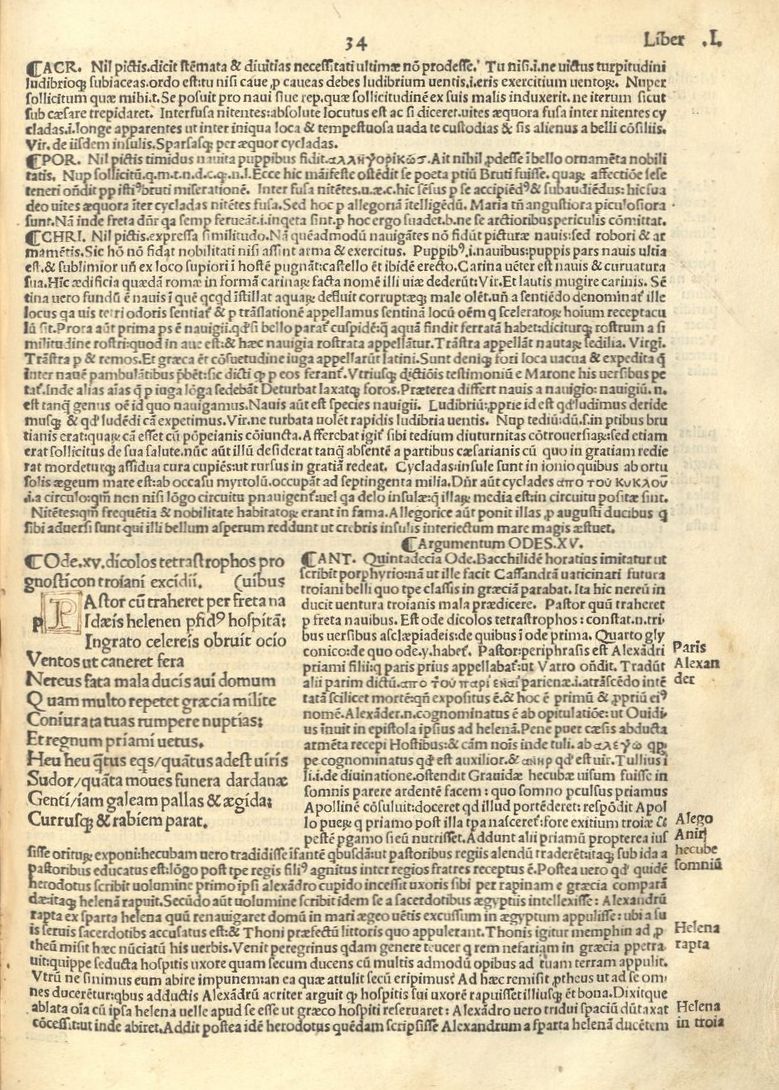 34 Liber .I.
¶ACR. Nil pictis.dicit stēmata & diuitias necessitati ultimæ nō prodesse. Tu nisi.i.ne uictus turpitudini
ludibrioqꝫ subiaceas.ordo est:tu nisi caue ꝑ caueas debes ludibrium uentis.i.eris exercitium uentoꝝ. Nuper
sollicitum quæ mihi.t. Se posuit pro naui siue rep.quæ sollicitudinē ex suis malis induxerit.ne iterum sicut
sub cæsare trepidaret. Interfusa nitentes:absolute locutus est ac si diceret.uites æquora fusa inter nitentes cy
cladas.i.longe apparentes ut inter iniqua loca & tempestuosa uada te custodias & sis alienus a belli cōsiliis.
Vir.de iisdem insulis. Sparsasqꝫ per æquor cycladas.
¶POR. Nil pictis timidus nauita puppibus fidit. αλληγορικῶσ. Ait nihil ꝓdesse ī bello ornamēta nobili
tatis. Nup sollicitū.q.m.t.n.d.c.q.n.l. Ecce hic māifeste ostēdit se poeta ptiū Bruti fuisse.quaꝝ affectiōe sese
teneri oñdit pp istiꝰ bruti miserationē. Inter fusa nitētes.u.æ.c.hic sēsus ꝑ se accipiēdꝰ & subaudiēdus: hic sua
deo uites æquora īter cycladas nitētes fusa. Sed hoc p allegoriā ītelligēdū. Maria tñ angustiora piculosiora
sunt. Nā inde freta dñr qa semp ferueāt.i.inqeta sint.p hoc ergo suadet.b.ne se arctioribus periculis cōmittat.
¶CHRI. Nil pictis.expressa similitudo. Nā quēadmodū nauigātes nō fidūt picturæ nauis:sed robori & ar
mamētis. Sic hō nō fidat nobilitati nisi assint arma & exercitus. Puppibꝰ.i.nauibus:puppis pars nauis ultia
est. & sublimior uñ ex loco supiori ī hostē pugnāt:castello ēt ibidē erecto. Carina uēter est nauis & curuatura
sua. Hic ædificia quædā romæ in formā carinaꝝ facta nomē illi uiæ dederūt: Vir. Et lautis mugire carinis. Sē
tina uero fundū ē nauis ī quē qcqd īstillat aquaꝝ defluit corruptæqꝫ male olēt.uñ a sentiēdo denominat ille
locus qa uis tetri odoris sentiat & p trāslationē appellamus sentinā locū oēm q sceleratoꝝ hoium receptacu
lū sit. Prora aūt prima ps ē nauigii.qd si bello parat cuspidē:q aquā findit ferratā habet:diciturqꝫ rostrum a si
militudine rostri:quod in aue est:& hæc nauigia rostrata appellātur. Trāstra appellāt nautaꝝ sedilia. Virgi.
Trāstra p & remos. Et græca ēt cōsuetudine iuga appellarūt latini. Sunt deniqꝫ fori loca uacua & expedita q
inter nauē pambulātibus p̄bēt:sic dicti qꝫ p eos ferant. Vtriusqꝫ dictiōis testimoniū e Marone his uersibus pe
tat. Inde alias aīas q p iuga lōga sedebāt Deturbat laxatqꝫ foros. Præterea differt nauis a nauigio: nauigiū.n.
est tanq̄ genus oē id quo nauigamus. Nauis aūt est species nauigii. Ludibriū: ꝓprie id est qd ludimus deride
musqꝫ & qd ludēdi cā expetimus. Vir.ne turbata uolēt rapidis ludibria uentis. Nup tediū:dū.s.in ptibus bru
tianis erat:quaꝝ cā esset cū pōpeianis cōiuncta. Afferebat igit sibi tedium diuturnitas cōtrouersiaꝝ:sed etiam
erat sollicitus de sua salute.nūc aūt illū desiderat tanq̄ absentē a partibus cæsarianis cū quo in gratiam redie
rat mordeturqꝫ assidua cura cupiēs:ut rursus in gratiā redeat. Cycladas:insule sunt in ionio quibus ab ortu
solis ægeum mare est:ab occasu myrtolū.occupāt ad septingenta milia. Dñr aūt cyclades απο του κυκλου
.i.a circulo:qm̄ non nisi lōgo circuitu pnauigent:uel qa delo insulæ:q illaꝝ media est:in circuitu positæ sint.
Nitētes:qm̄ frequētia & nobilitate habitatoꝝ erant in fama. Allegorice aūt ponit illas p augusti ducibus q
sibi aduersi sunt qui illi bellum asperum reddunt ut crebris insulis interiectum mare magis æstuet.
¶Ode.xv.dicolos tetrastrophos pro
gnosticon troiani excidii. (uibus
PAstor cū traheret per freta na
Idæis helenen pfidꝰ hospitā:
Ingrato celereis obruit ocio
Ventos ut caneret fera
Nereus fata mala ducis aui domum
Quam multo repetet græcia milite
Coniurata tuas rumpere nuptias:
Et regnum priami uetus.
Heu heu q̄tus eqs/quātus adest uiris
Sudor/quāta moues funera dardanæ
Genti/iam galeam pallas & ægida:
Currusqꝫ & rabiem parat.
¶Argumentum ODES.XV.
¶CANT. Quintadecia Ode. Bacchilidē horatius imitatur ut
scribit porphyrio:nā ut ille facit Cassandrā uaticinari futura
troiani belli quo tpe classis in græciā parabat. Ita hic nereū in
ducit uentura troianis mala prædicere. Pastor quū traheret
p freta nauibus. Est ode dicolos tetrastrophos: constat.n.tri
bus uersibus asclæpiadeis:de quibus ī ode prima. Quarto gly
conico:de quo ode.y.habet. Pastor:periphrasis est Alexādri
priami filii:q paris prius appellabat:ut Varro oñdit. Tradūt
alii parim dictū.απο του παρι εναι parienæ.i.a trāscēdo intē
tatā scilicet mortē:qñ expositus ē.& hoc ē primū & ꝓpriū eiꝰ
nomē. Alexāder.n.cognominatus ē ab opitulatiōe:ut Ouidi
us īnuit in epistola ipsius ad helenā. Pene puer cæsis abducta
armēta recepi Hostibus:& cām nois inde tuli. ab αλεγω qp
pe cognominatus qd est auxilior.& ανηρ qd est uir. Tullius ī
li.i.de diuinatione.ostendit Grauidæ hecubæ uisum fuisse in
somnis parere ardentē facem: quo somno pculsus priamus
Apollinē cōsuluit:doceret qd illud portēderet: respōdit Apol
lo pueꝝ q priamo post illa tpa nasceret:fore exitium troiæ &
pestē pgamo si eū nutrisset. Addunt alii priamū propterea ius
sisse oritur exponi:hecubam uero tradidisse īfantē qbusdā:ut pastoribus regiis alendū traderēt:itaqꝫ sub ida a
pastoribus educatus est:lōgo post tpe regis filiꝰ agnitus inter regios fratres receptus ē. Postea uero qd quidē
herodotus scribit uolumine primo ipsi alexādro cupido incessit uxoris sibi per rapinam e græcia comparā
dæ:itaqꝫ helenā rapuit. Secūdo aūt uolumine scribit idem se a sacerdotibus ægyptiis intellexisse: Alexandrū
rapta ex sparta helena quū renauigaret domū in mari ægeo uētis excussum in ægyptum appulisse: ubi a su
is seruis sacerdotibs accusatus est:& Thoni præfectū littoris quo appulerant. Thonis igitur memphin ad ꝓ
theū misit hæc nūciatū his uerbis. Venit peregrinus qdam genere teucer q rem nefariam in græcia ppetra
uit:quippe seducta hospitis uxore quam secum ducens cū multis admodū opibus ad tuam terram appulit.
Vtrū ne sinimus eum abire impunem:an ea quæ attulit secū eripimus? Ad hæc remisit ꝓtheus ut ad se om
nes ducerētur:qbus adductis Alexādrū acriter arguit q hospitis sui uxorē rapuisset illiusqꝫ ēt bona. Dixitque
ablata oīa cū ipsa helena uelle apud se esse ut græco hospiti reseruaret: Alexādro uero tridui spaciū dūtaxat
cōcessit:ut inde abiret. Addit postea idē herodotus quēdam scripsisse Alexandrum a sparta helenā ducētem
Paris
Alexan
der
Alego
Anir
hecube
somniū
Helena
rapta
Helena
in troia